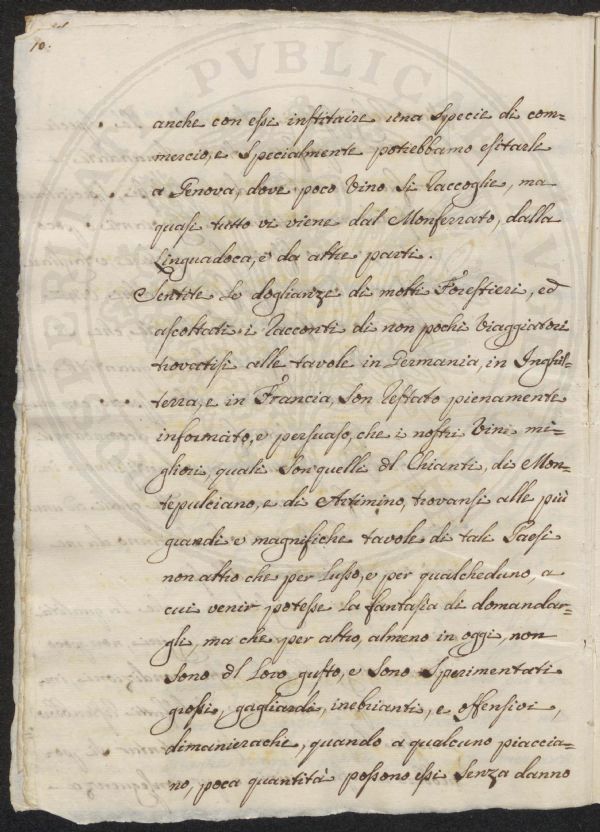 10.
anche con esse instituire una Specie di com=
mercio, e Specialmente potrebbamo esitarle
a Genova, dove poco Vino Si Raccoglie, ma
quasi tutto vi viene dal Monferrato, dalla
Linguadoca, e da altre parti.
Sentite Le doglianze di molti Forestieri, ed
ascoltati i Racconti di non pochi Viaggiatori
trovatisi alle tavole in Germania, in Inghil=
terra, e in Francia, Son Restato pienamente
informato, e persuaso, che i nostri Vini mi=
gliori, quali Son quelle dl Chianti, di Mon=
tepulciano, e di Artimino, trovansi alle più
grandi e magnifiche tavole di tali Paesi
non altro che per Lusso, e per qualcheduno, a
cui venir potesse La fantasia di domandar=
gli, ma che per altro, almeno in oggi, non
Sono dl Loro gusto, e Sono Sperimentati
grossi, gagliardi, inebrianti, e offensivi,
dimanierache, quando a qualcuno piaccia=
no, poca quantità possono essi Senza danno
PVBLICA